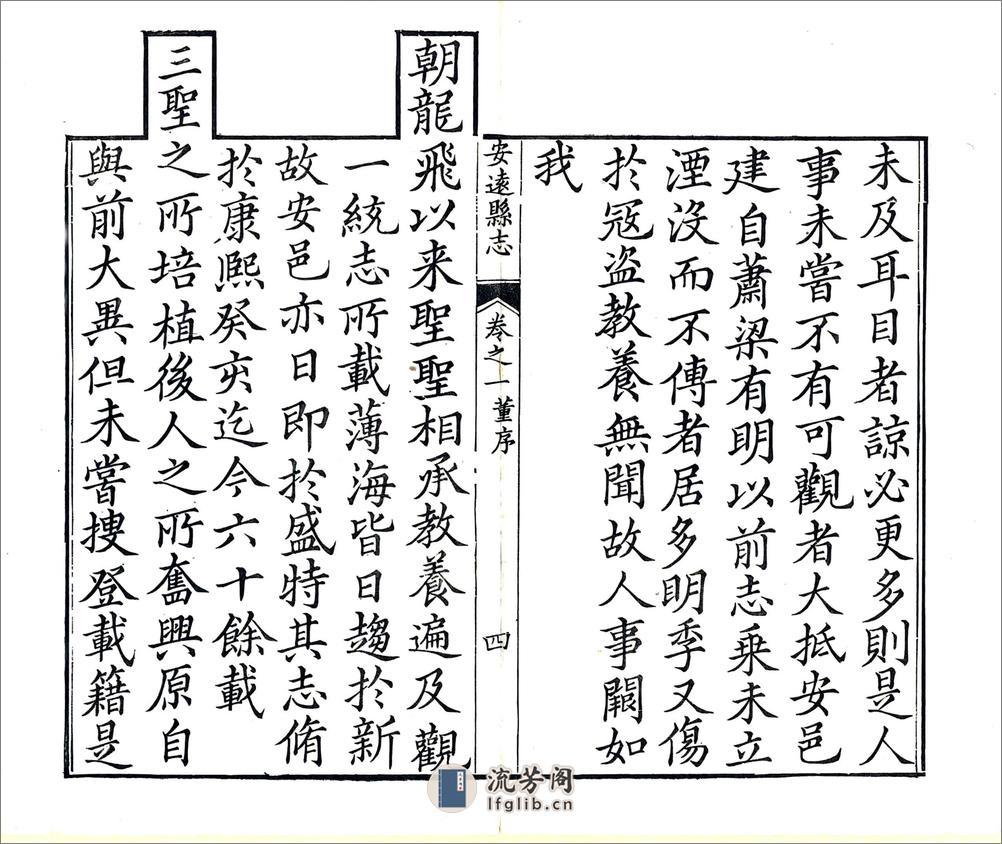 未及耳目者諒必更多則是人
事未嘗不有可觀者大抵安邑
建自蕭梁有明以前志乗未立
湮沒而不傳者居多明季又傷
於冦盗教養無聞故人事闕如
我
安遠縣志
卷之一董序
四
朝龍飛以来聖聖相承教養遍及觀
一統志所載薄海皆日趨於新
故安邑亦日即於盛特其志脩
於康熙癸亥迄今六十餘載
三聖之所培植後人之所奮興原自
與前大異但未嘗搜登載籍是
流芳阁
lfglib.cn